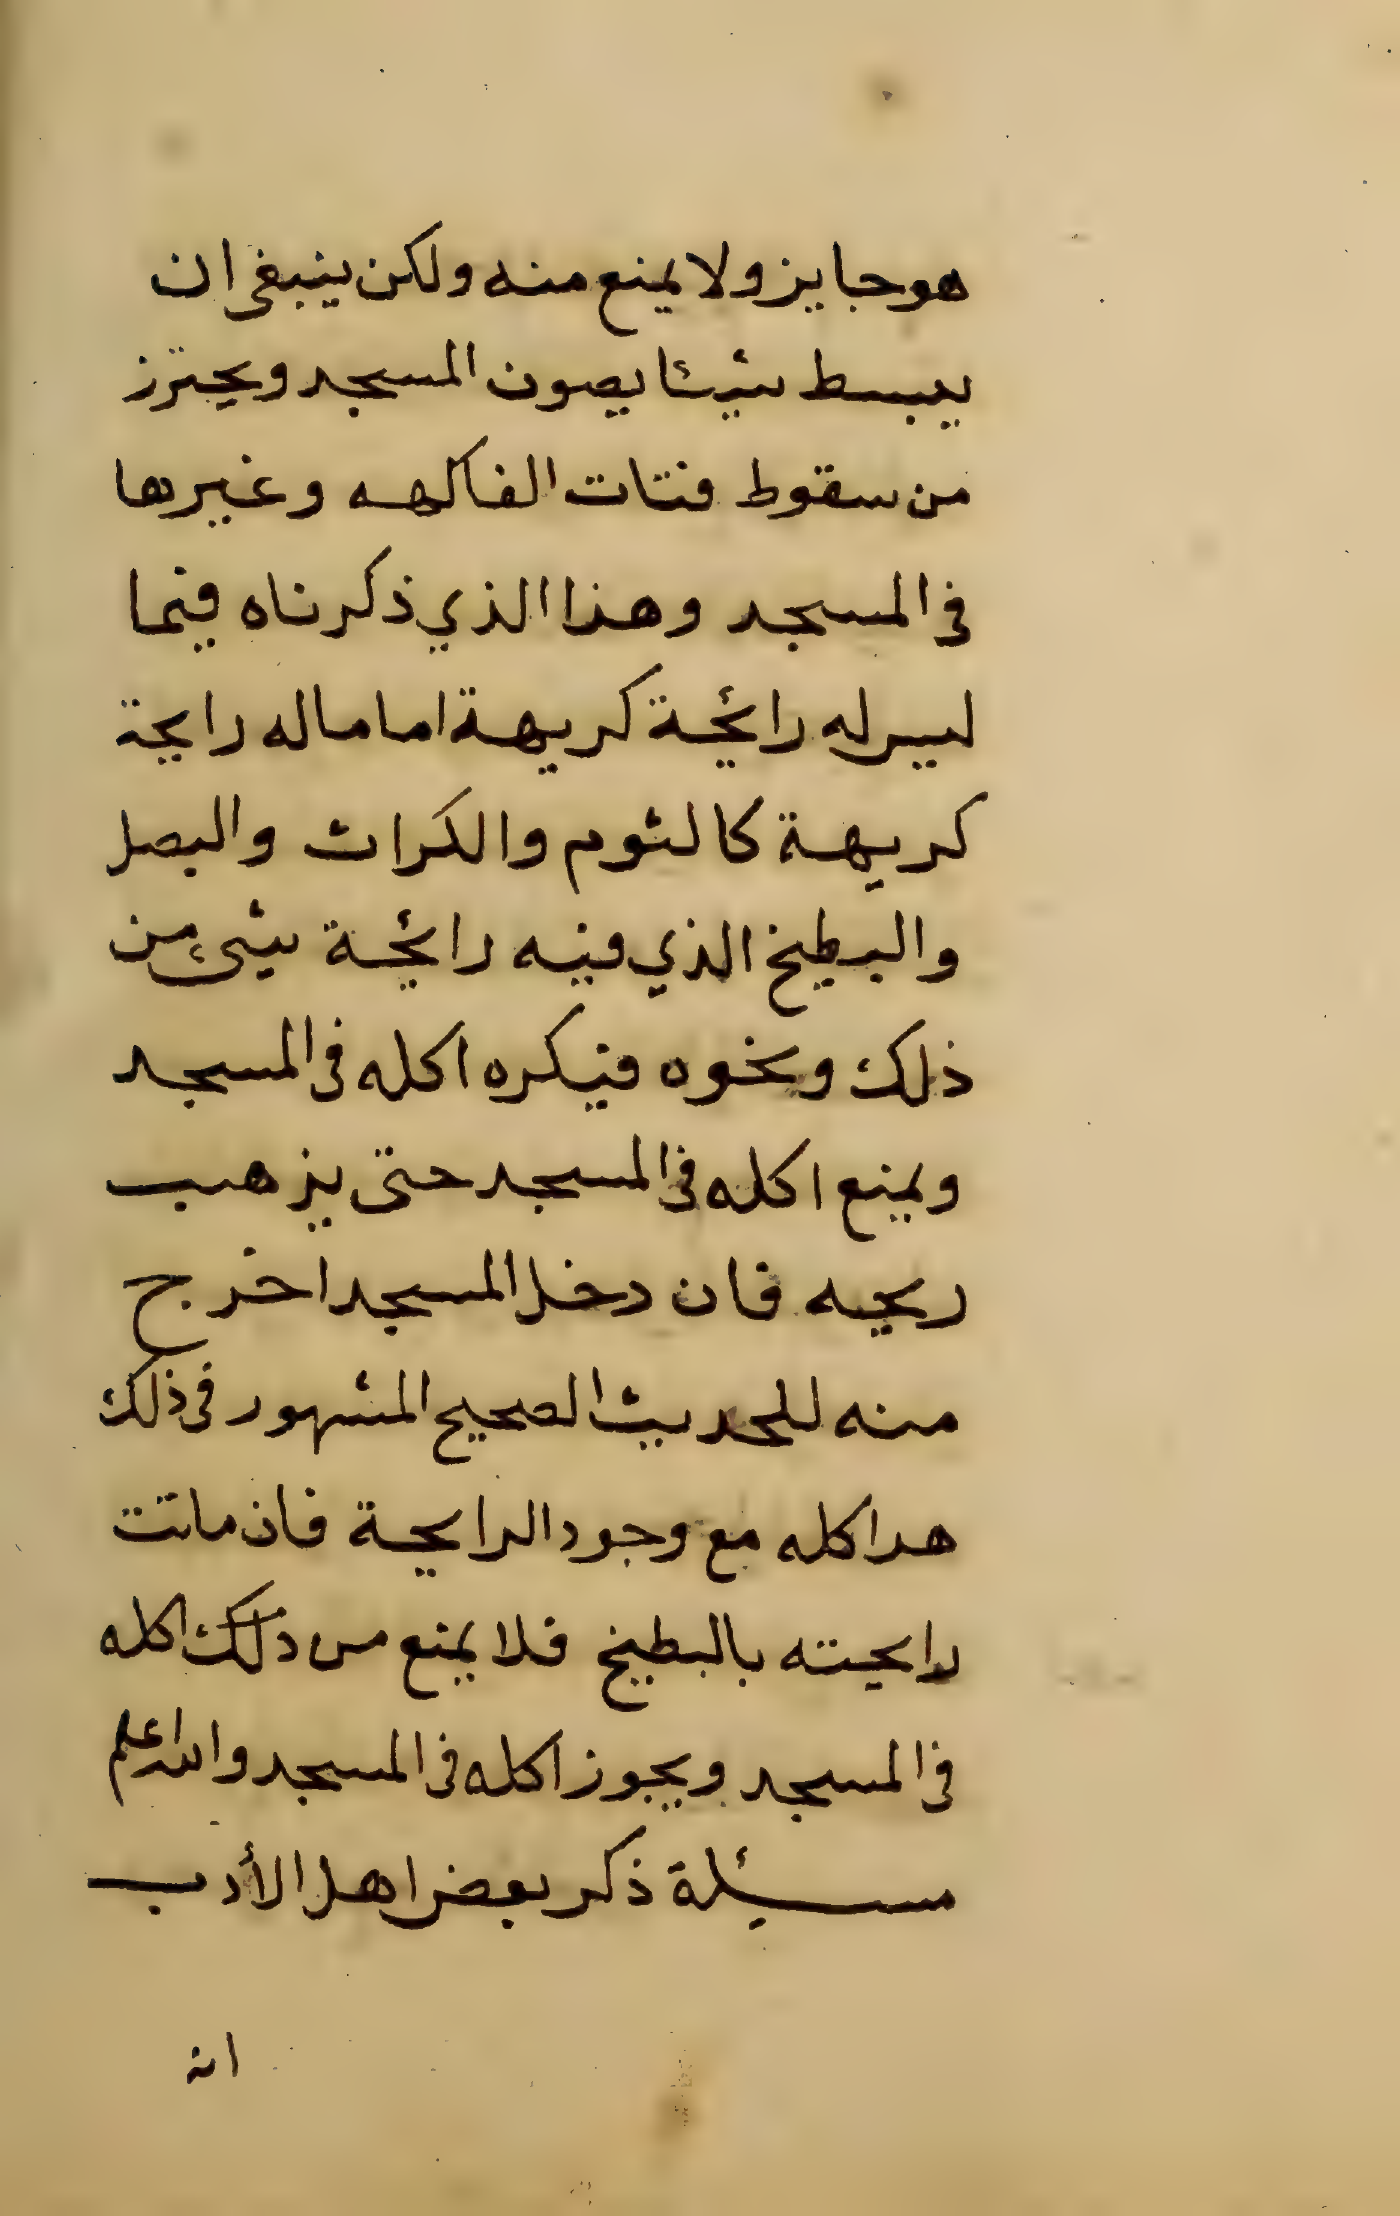 هو جايز ولا يمنع منه ولكن ينبغى ان
يبسط شيئا يصون المسجد ويحترز
من سقوط فتات الفاكهه وغيرها
فى المسجد وهذا الذي ذكرناه فيما
ليس له رائحة كريهة اما ماله رايحة
كريهة كالثوم والكراث والبصل
والبطيخ الذي فيه رائحة شىء من
ذلك ونحوه فيكره اكله فى المسجد
ويمنع اكله فى المسجد حتى يذهب
ريحه فان دخل المسجد اخرج
منه للحديث الصحيح المشهور فى ذلك
هدا كله مع وجود الرايحة فان ماتت
رايحته بالبطيخ فلا يمنع من ذلك اكله
فى المسجد ويجوز اكله فى المسجد والله اعلم
مسئلة ذكر بعض اهل الأدب
انه